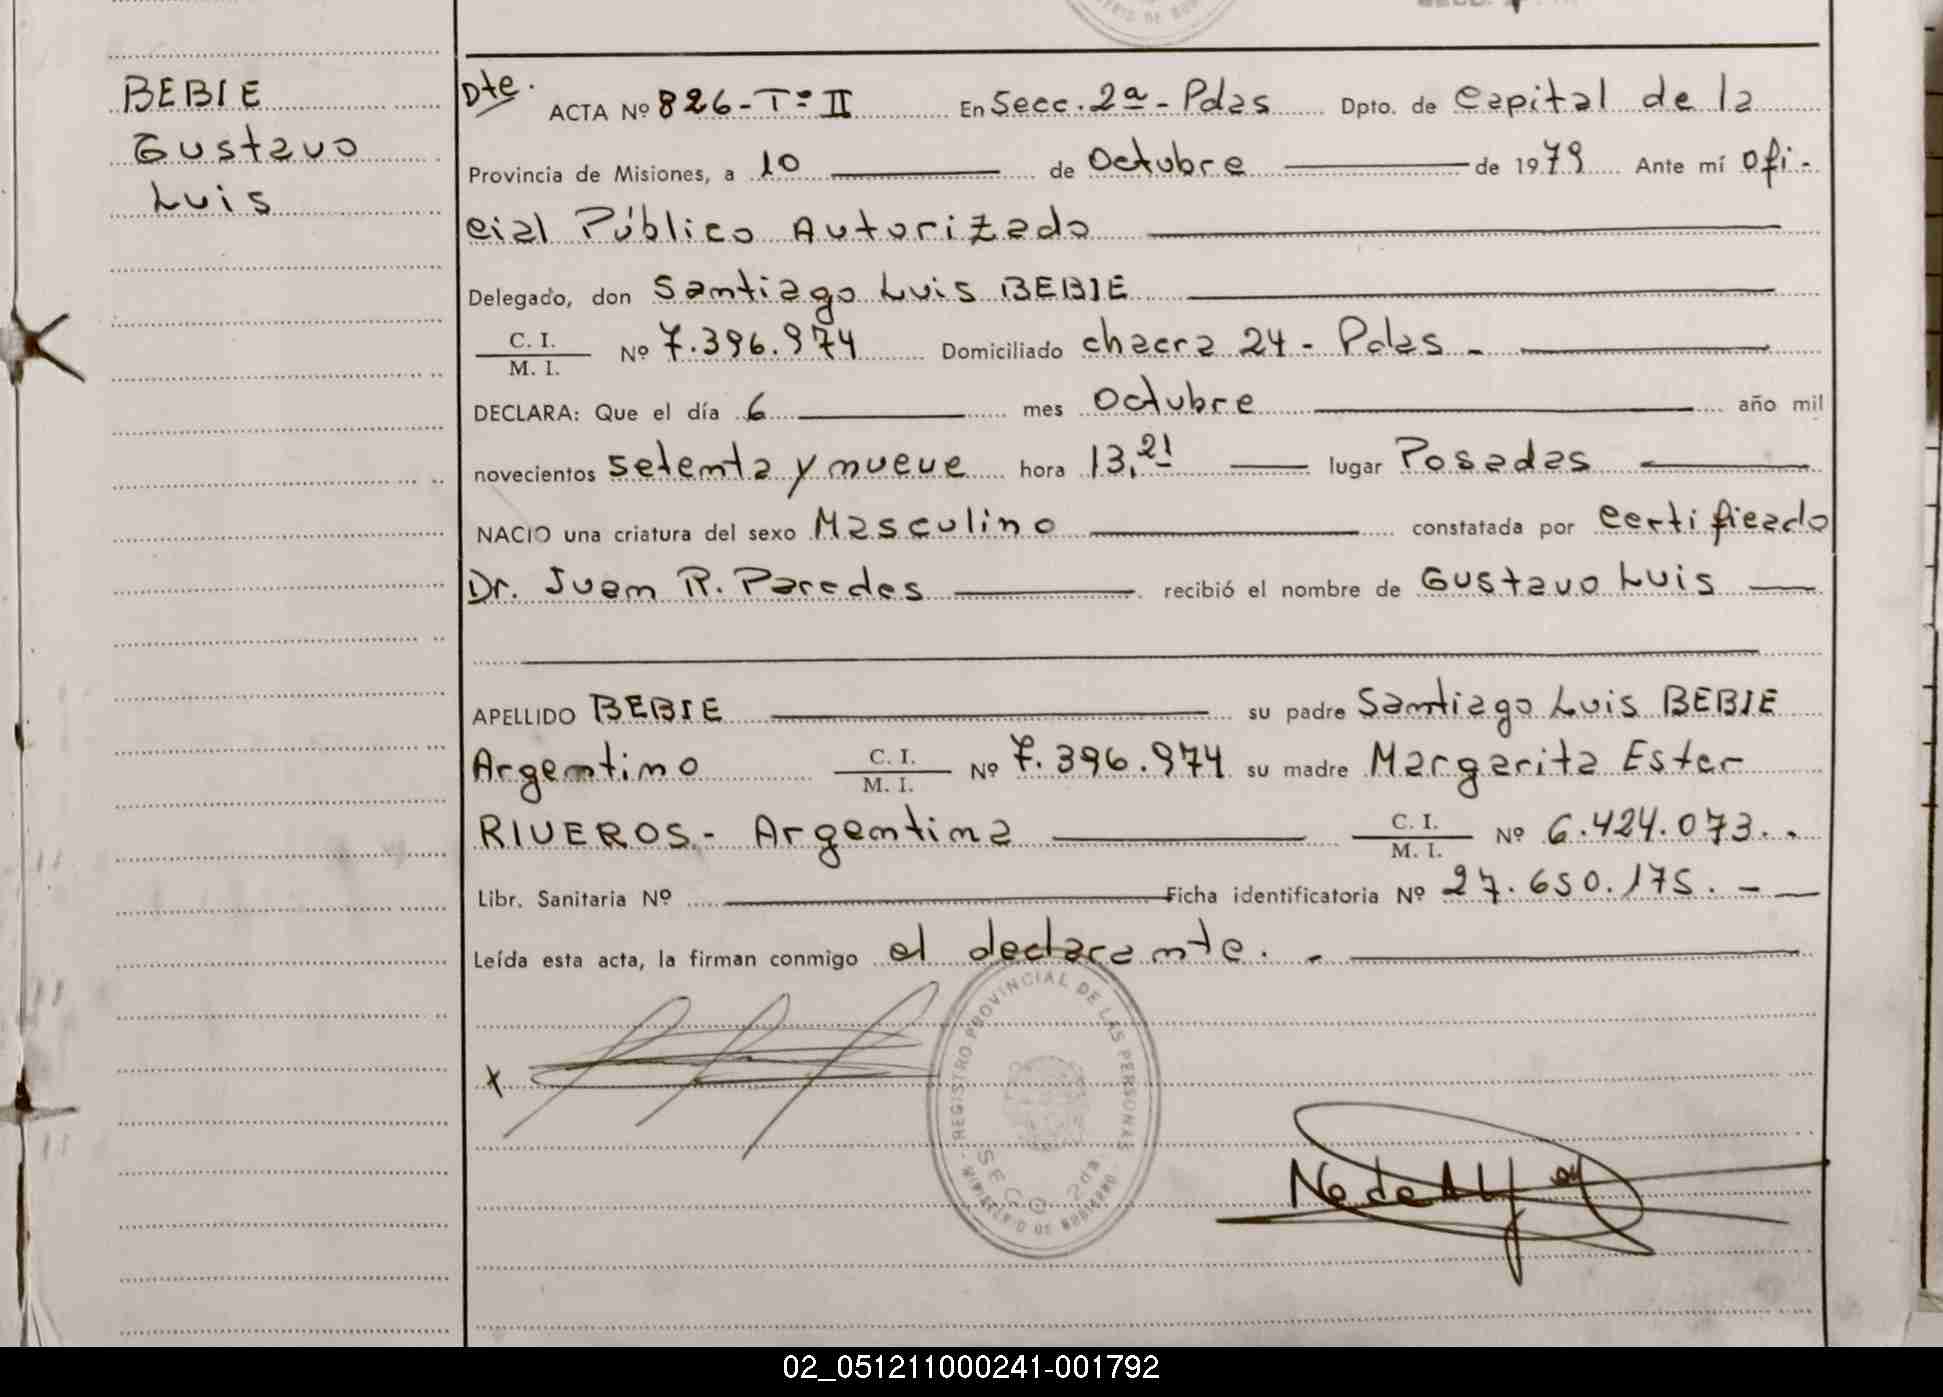 BEBIE
Gustavo
Luis
Dte.
ACTA Nº 826-Tº II En Secc. 2ª - Pdas Dpto. de Capital de la
Provincia de Misiones, a 10 de Octubre de 1979 Ante mí Ofi-
cial Público Autorizado
Delegado, don Santiago Luis BEBIE
C. I.
M. I. Nº 7.396.974 Domiciliado chacra 24 - Pdas -
DECLARA: Que el día 6 mes Octubre año mil
novecientos setenta y nueve hora 13,21 lugar Posadas
NACIO una criatura del sexo Masculino constatada por certificado
Dr. Juan R. Paredes recibió el nombre de Gustavo Luis
APELLIDO BEBIE su padre Santiago Luis BEBIE
Argentino C. I.
M. I. Nº 7.396.974 su madre Margarita Ester
RIVEROS.- Argentina C. I.
M. I. Nº 6.424.073..
Libr. Sanitaria Nº Ficha identificatoria Nº 27.650.175. -
Leída esta acta, la firman conmigo el declarante. -
x
REGISTRO PROVINCIAL DE LAS PERSONAS
SECC. 2da.
MINISTERIO DE GOBIERNO
02_051211000241-001792